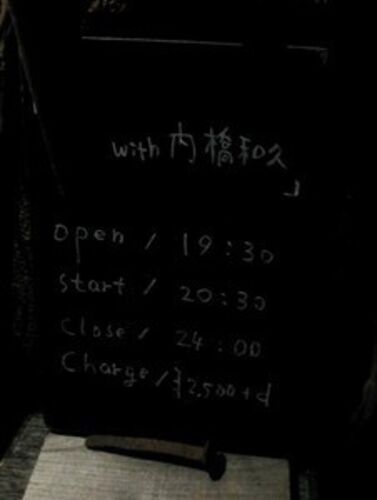 with 内橋和久
」
open / 19:30
start / 20:30
Close / 24:00
Charge / ¥2,500+d